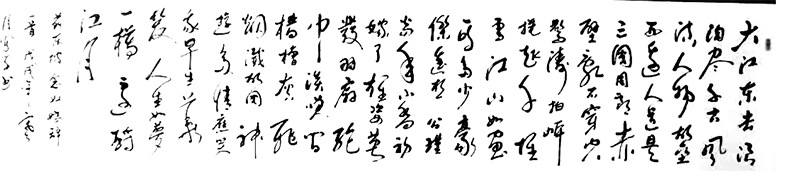 大江东去浪
淘尽千古风
流人物故垒
西边人道是
三国周郎赤
壁乱石穿空
惊涛拍岸
捲起千堆
雪江山如画
一时多少豪
傑遥想公瑾
当年小乔初
嫁了雄姿英
發羽扇纶
巾谈笑间
樯橹灰飞
烟灭故国神
遊多情应笑
我早生华
发人生如梦
一樽还酹
江月
苏东坡念奴娇辞
一首戊戌年